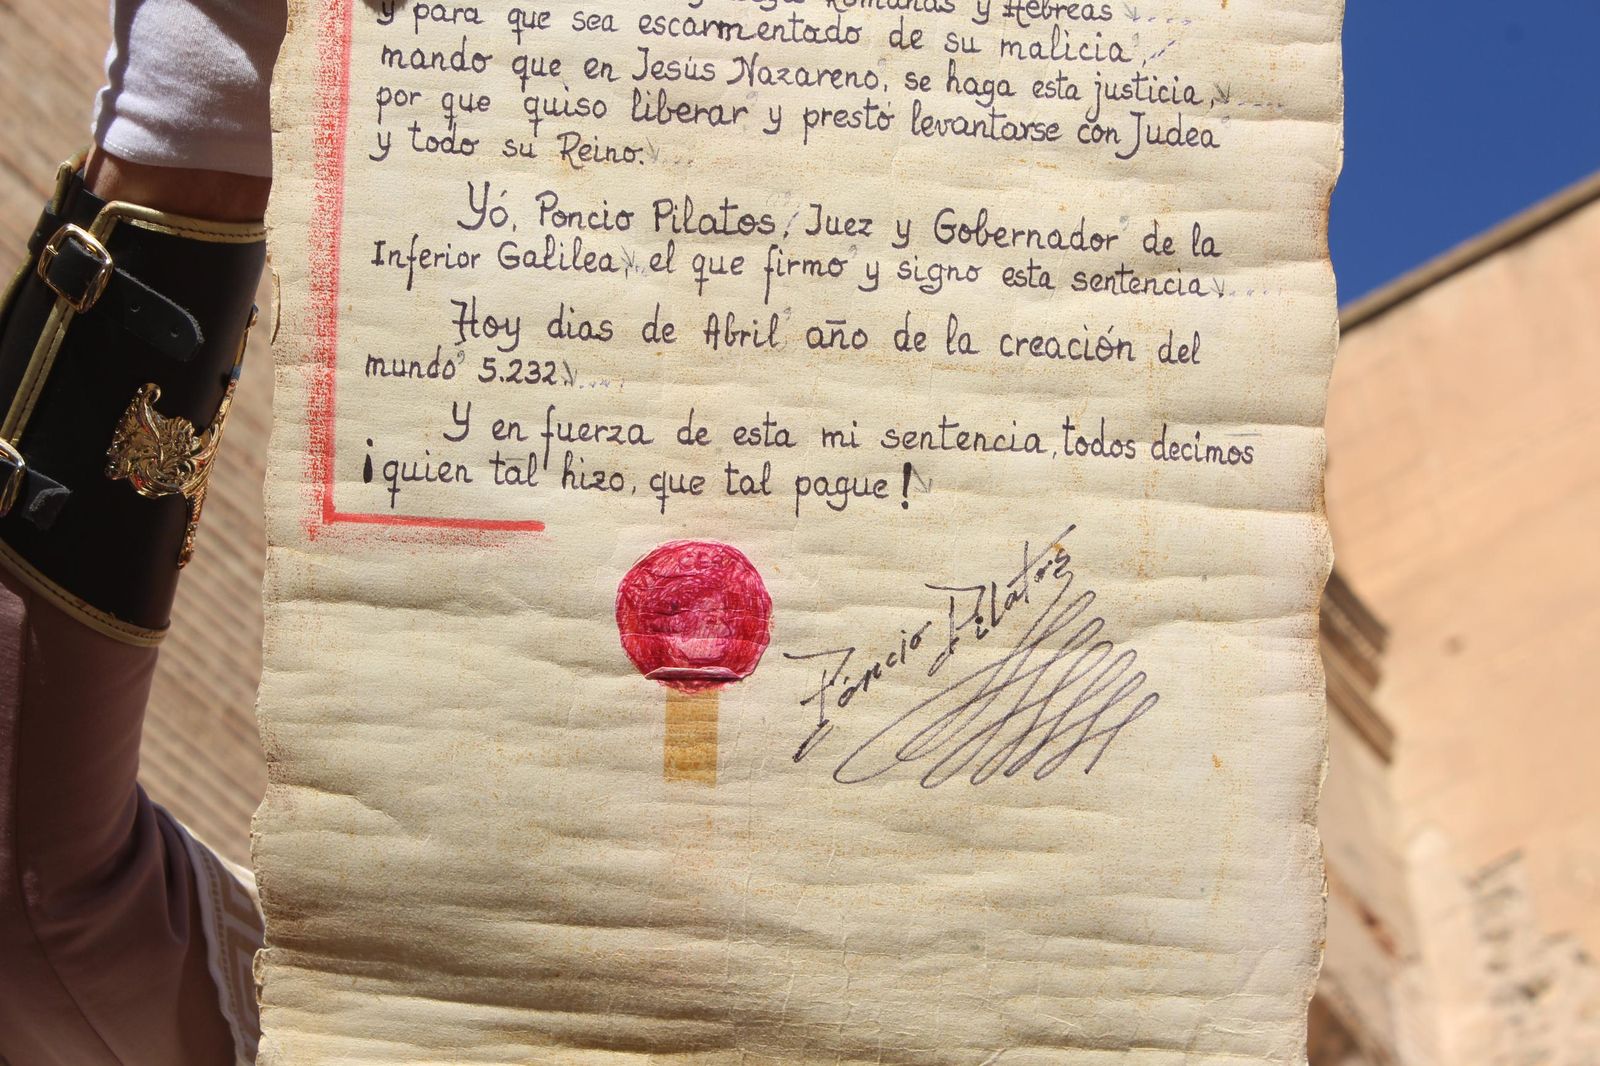 Romanas y Hebreas
y para que sea escarmentado de su malicia,
mando que en Jesús Nazareno, se haga esta justicia,
por que quiso liberar y prestó levantarse con Judea
y todo su Reino.
Yó, Poncio Pilatos, Juez y Gobernador de la
Inferior Galilea, el que firmo y signo esta sentencia.
Hoy dias de Abril año de la creación del
mundo 5.232.
Y en fuerza de esta mi sentencia, todos decimos
¡quien tal hizo, que tal pague!
Poncio Pilatos